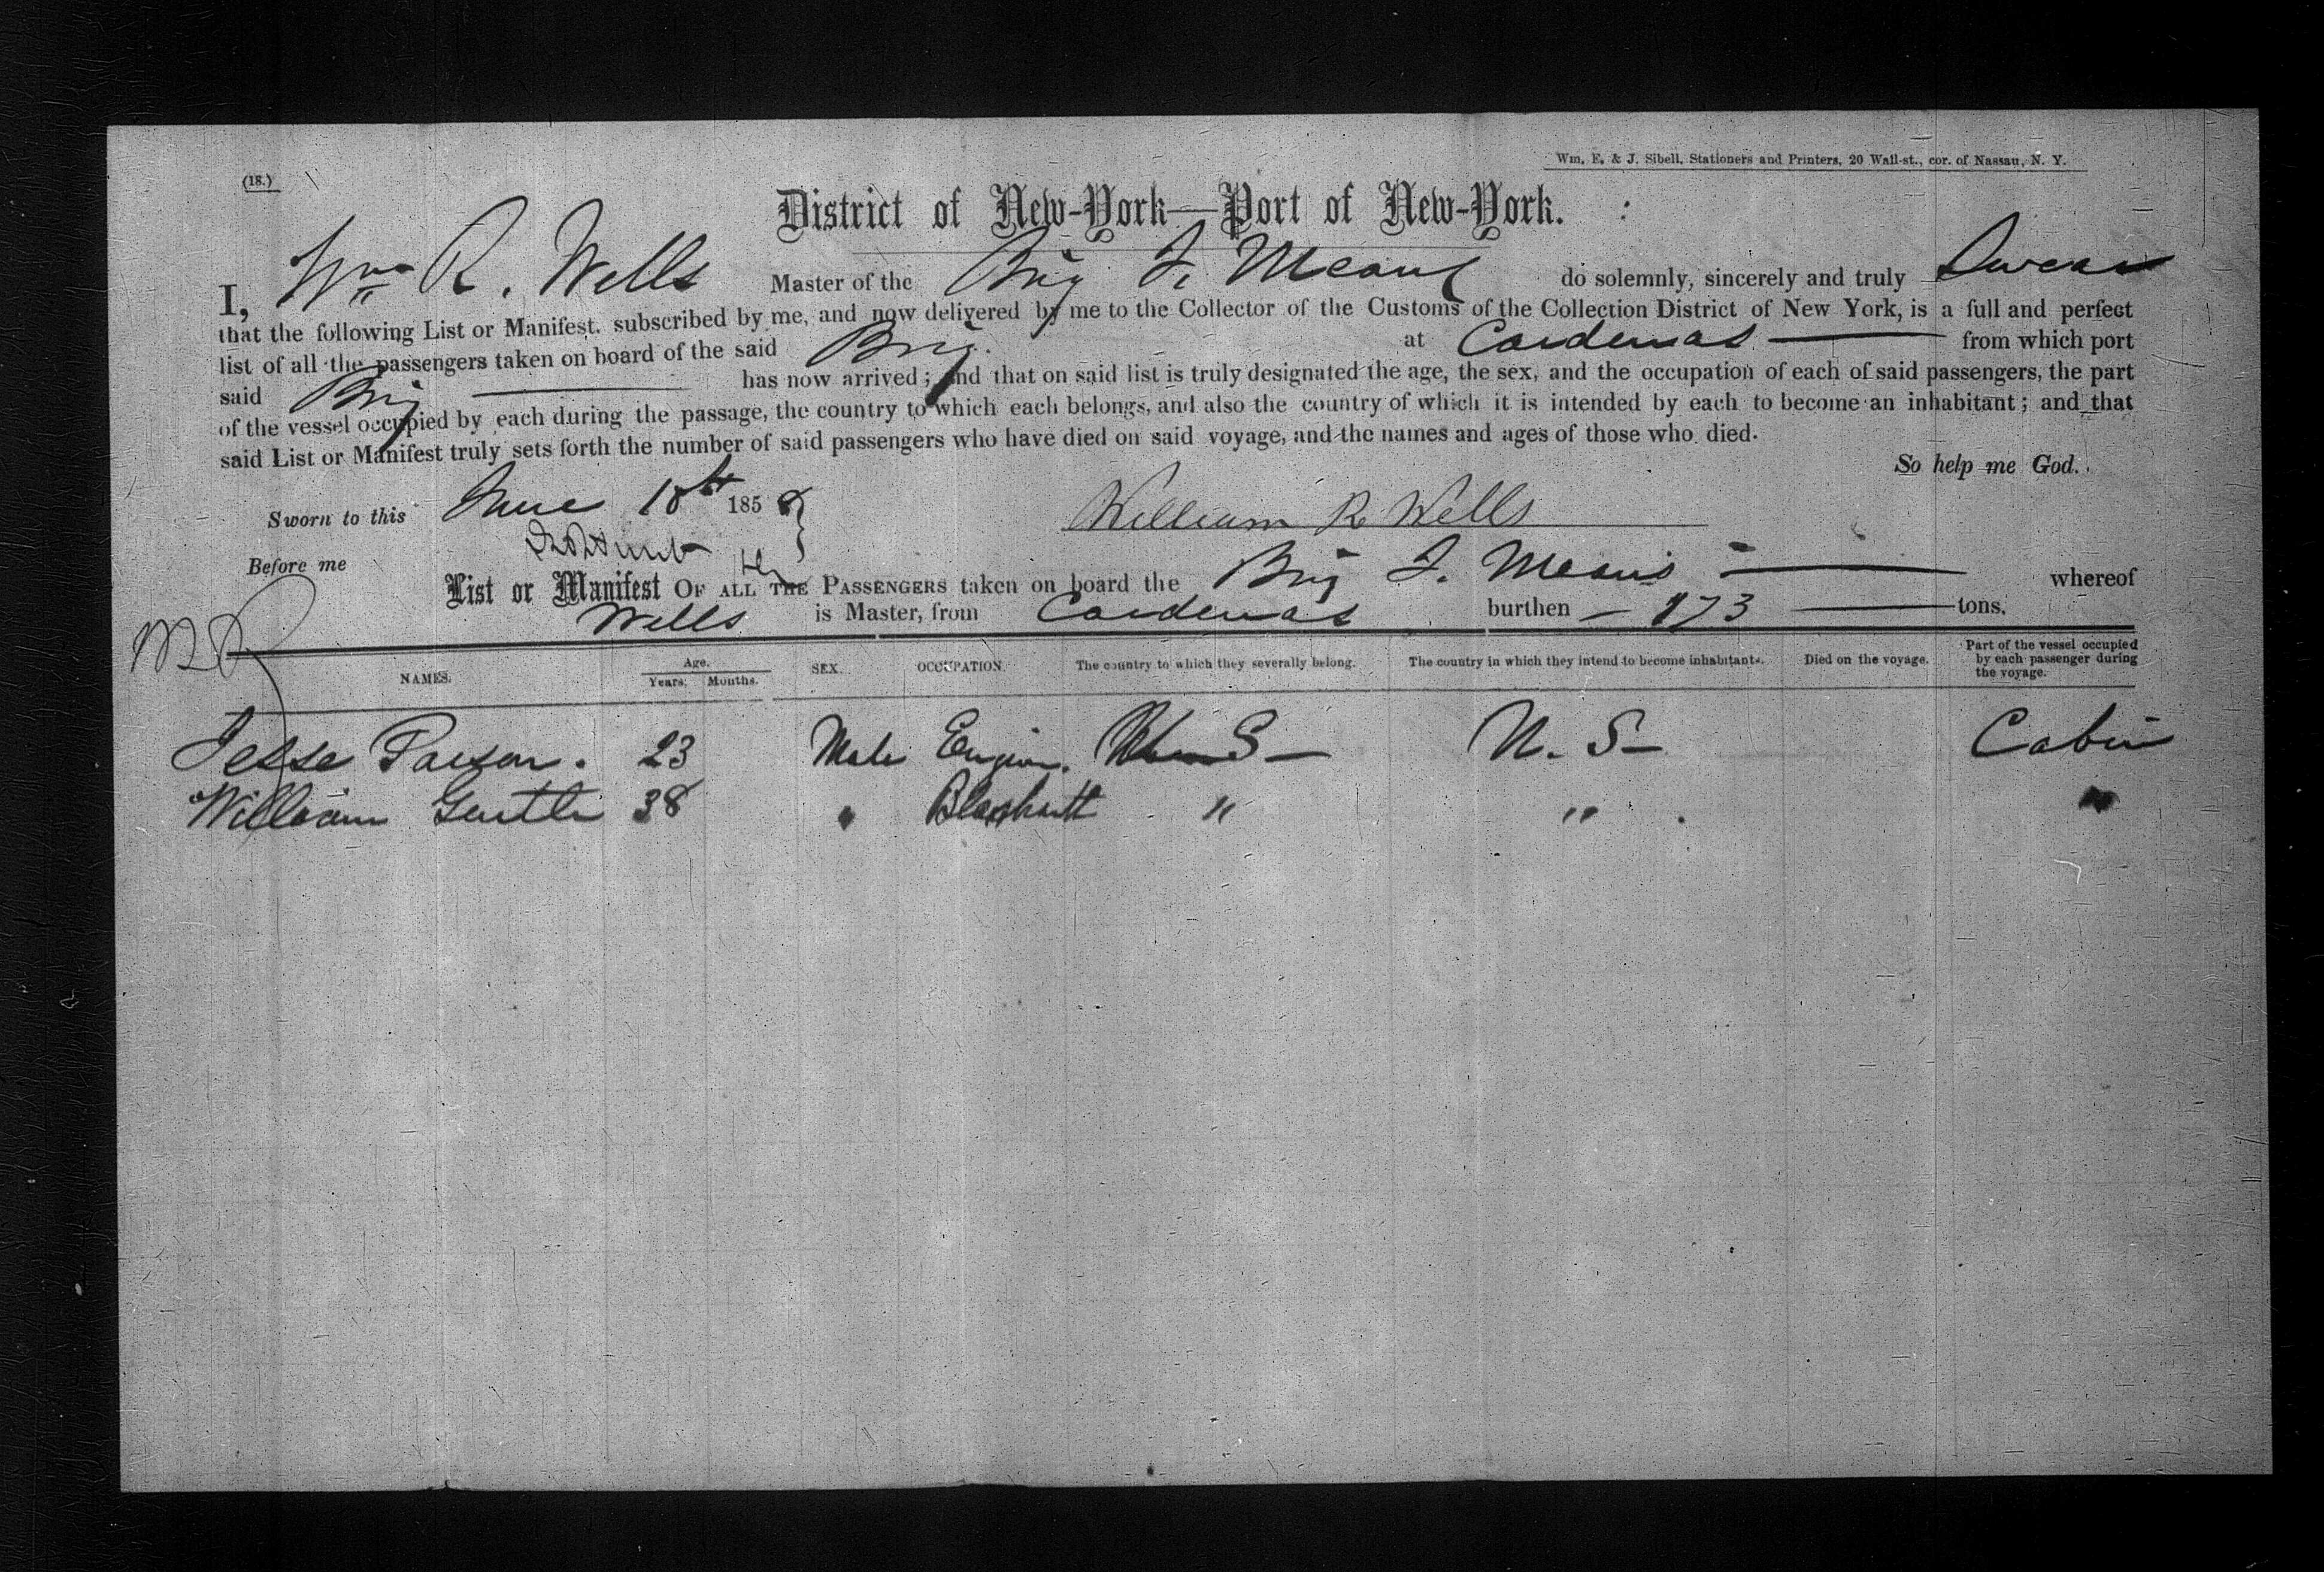 (18.)
Wm. E. & J. Sibell, Stationers and Printers, 20 Wall-st., cor. of Nassau, N. Y.
District of New-York—Port of New-York.
I, Wm R. Wells Master of the Brig J. Means do solemnly, sincerely and truly Swear
that the following List or Manifest, subscribed by me, and now delivered by me to the Collector of the Customs of the Collection District of New York, is a full and perfect
list of all the passengers taken on board of the said Brig at Cardenas from which port
said Brig has now arrived; and that on said list is truly designated the age, the sex, and the occupation of each of said passengers, the part
of the vessel occupied by each during the passage, the country to which each belongs, and also the country of which it is intended by each to become an inhabitant; and that
said List or Manifest truly sets forth the number of said passengers who have died on said voyage, and the names and ages of those who died.
So help me God.
Sworn to this June 18th 1858
William R Wells
Before me
List or Manifest OF ALL THE PASSENGERS taken on board the Brig J. Means whereof
Wells is Master, from Cardenas burthen 173 tons.
NAMES. Age. Years. Months. SEX. OCCUPATION. The country to which they severally belong. The country in which they intend to become inhabitants. Died on the voyage. Part of the vessel occupied by each passenger during the voyage.
Jesse 23 Male S U. S Cabin
William 38 " " "